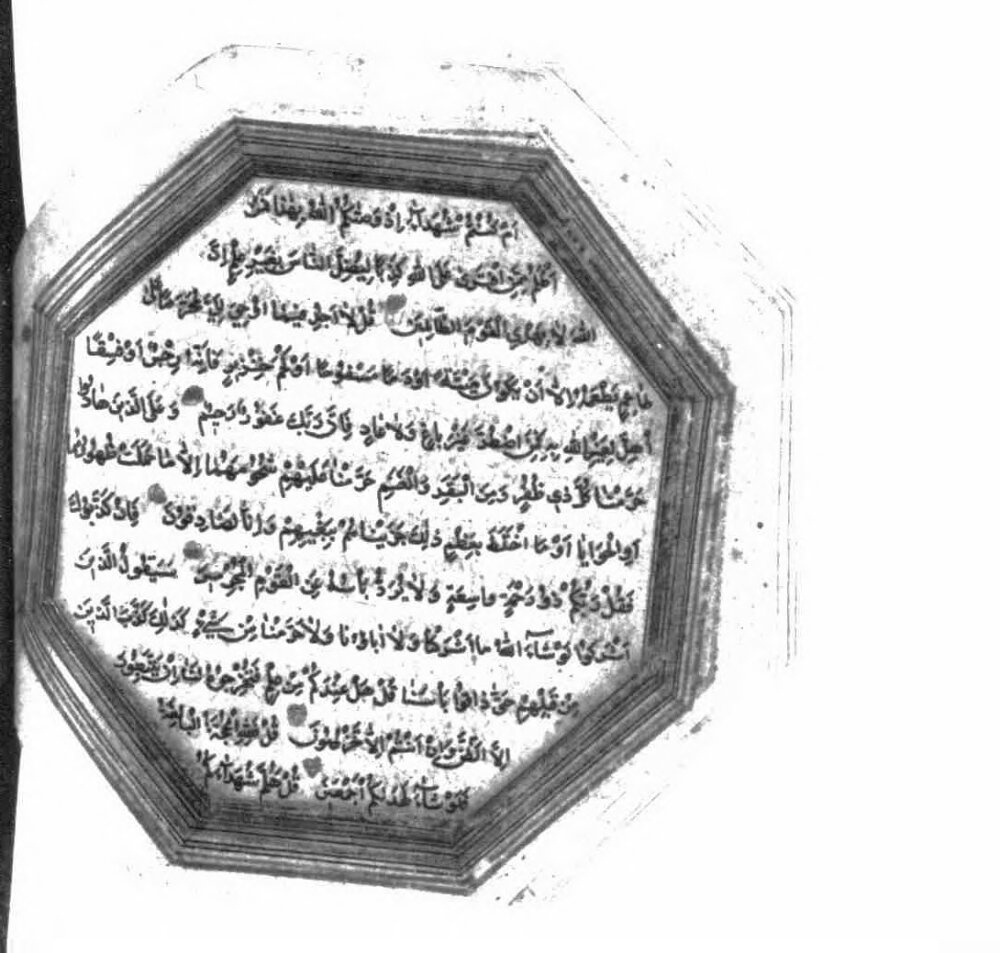 أم كنتم شهداء إذ وصىكم الله بهذا فمن
أظلم ممن افترى على الله كذبا ليضل الناس بغير علم إن
الله لا يهدي القوم الظالمين قل لا أجد في ما أوحي إلي محرما على
طاعم يطعمه إلا أن يكون ميتة أو دما مسفوحا أو لحم خنزير فإنه رجس أو فسقا
أهل لغير الله به فمن اضطر غير باغ ولا عاد فإن ربك غفور رحيم وعلى الذين هادوا
حرمنا كل ذي ظفر ومن البقر والغنم حرمنا عليهم شحومهما إلا ما حملت ظهورهما
أو الحوايا أو ما اختلط بعظم ذلك جزيناهم ببغيهم وإنا لصادقون فإن كذبوك
فقل ربكم ذو رحمة واسعة ولا يرد بأسه عن القوم المجرمين سيقول الذين
أشركوا لو شاء الله ما أشركنا ولا آباؤنا ولا حرمنا من شيء كذلك كذب الذين
من قبلهم حتى ذاقوا بأسنا قل هل عندكم من علم فتخرجوه لنا إن تتبعون
إلا الظن وإن أنتم إلا تخرصون قل فلله الحجة البالغة
فلو شاء لهداكم أجمعين قل هلم شهداءكم